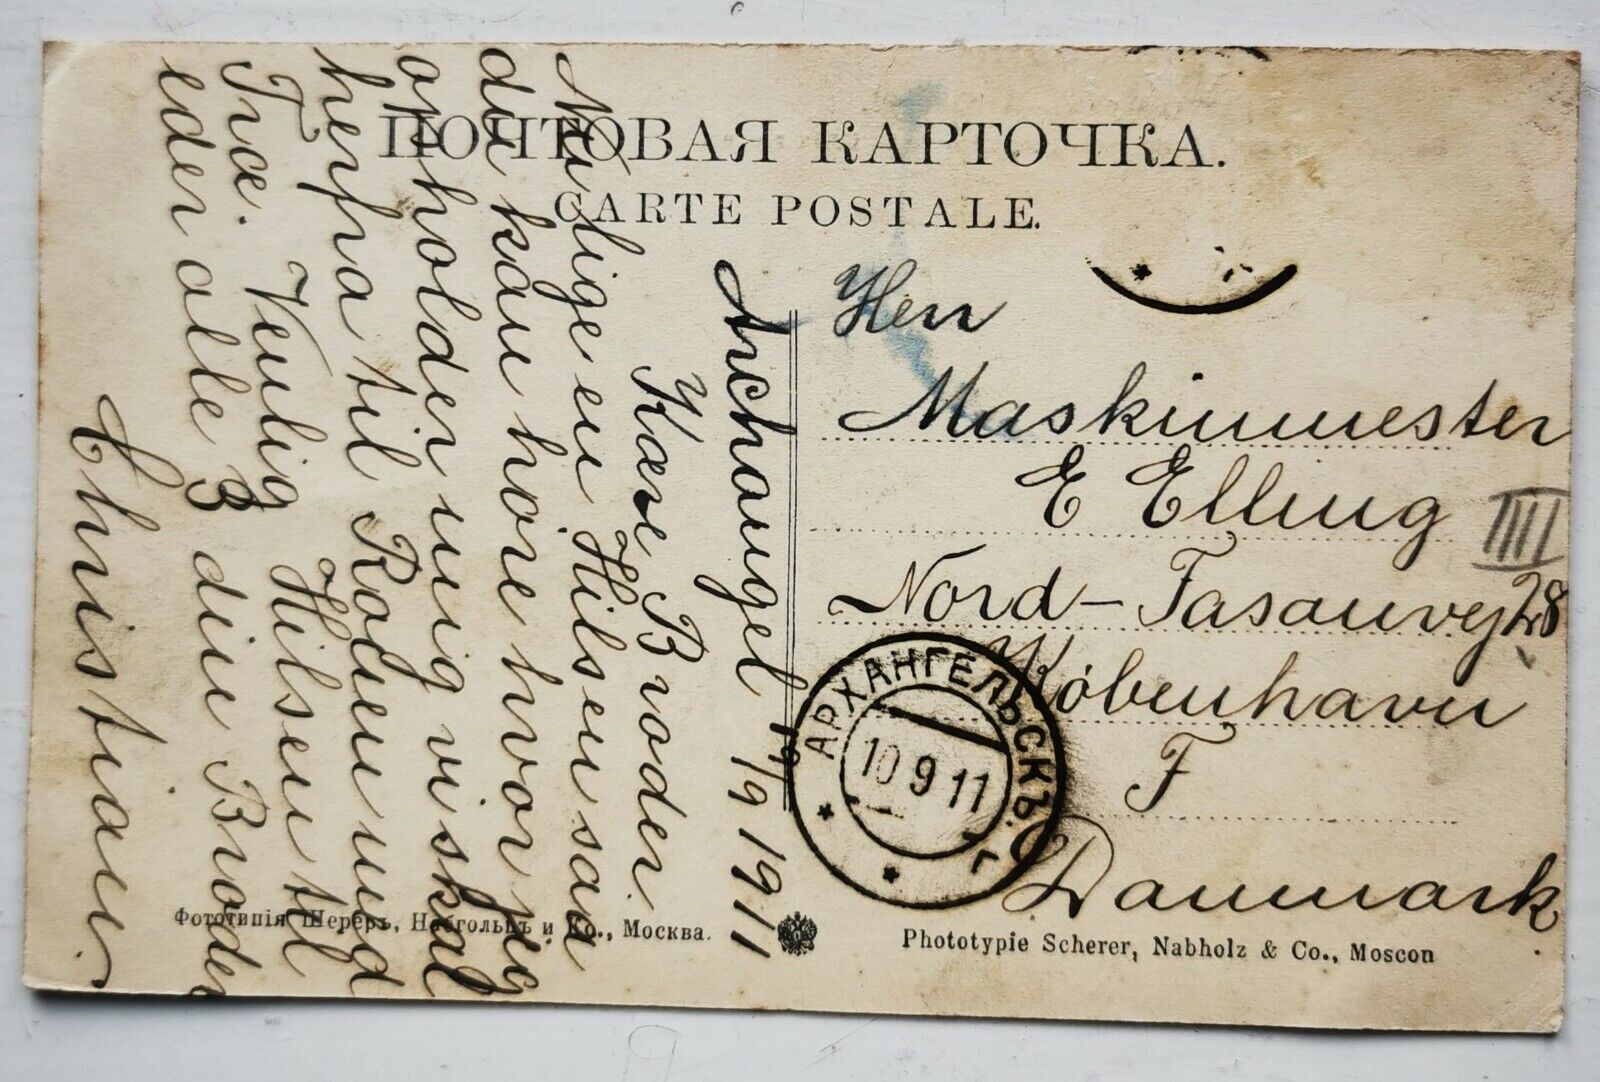 ПОЧТОВАЯ КАРТОЧКА.
CARTE POSTALE.
Archangel 19/9 1911
Kære Broder.
Nu lige en Hilsen saa
du kan høre hvor jeg
opholder mig vi skal
herfra til Rouen med
Træ. Venlig Hilsen til
eder alle 3 din Broder
Christian.
Herr
Maskinmester
E Elling
Nord-Fasanvej 28
København
F
Danmark
АРХАНГЕЛЬСКЪ
10 9 11
Фототипія Шереръ, Набгольцъ и Ко., Москва.
Phototypie Scherer, Nabholz & Co., Moscou